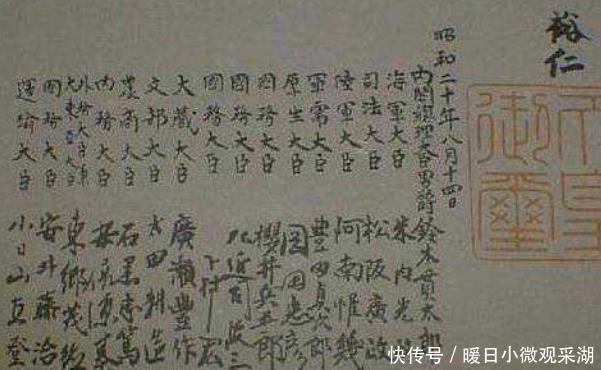 裕仁
御璽
昭和二十年八月十四日
内閣總理大臣男爵鈴木貫太郎
海軍大臣 米内光
司法大臣 松阪廣政
陸軍大臣 阿南惟幾
軍需大臣 豊田貞次郎
厚生大臣 岡田忠彦
國務大臣 櫻井兵五郎
國務大臣 左近司政三
國務大臣 下村宏
大藏大臣 廣瀬豊作
文部大臣 太田耕造
農商大臣 石黒忠篤
内務大臣 安倍源基
外務大臣兼
大東亞大臣 東郷茂徳
國務大臣 安井藤治
運輸大臣 小日山直登
快传号/暖日小微观采湖